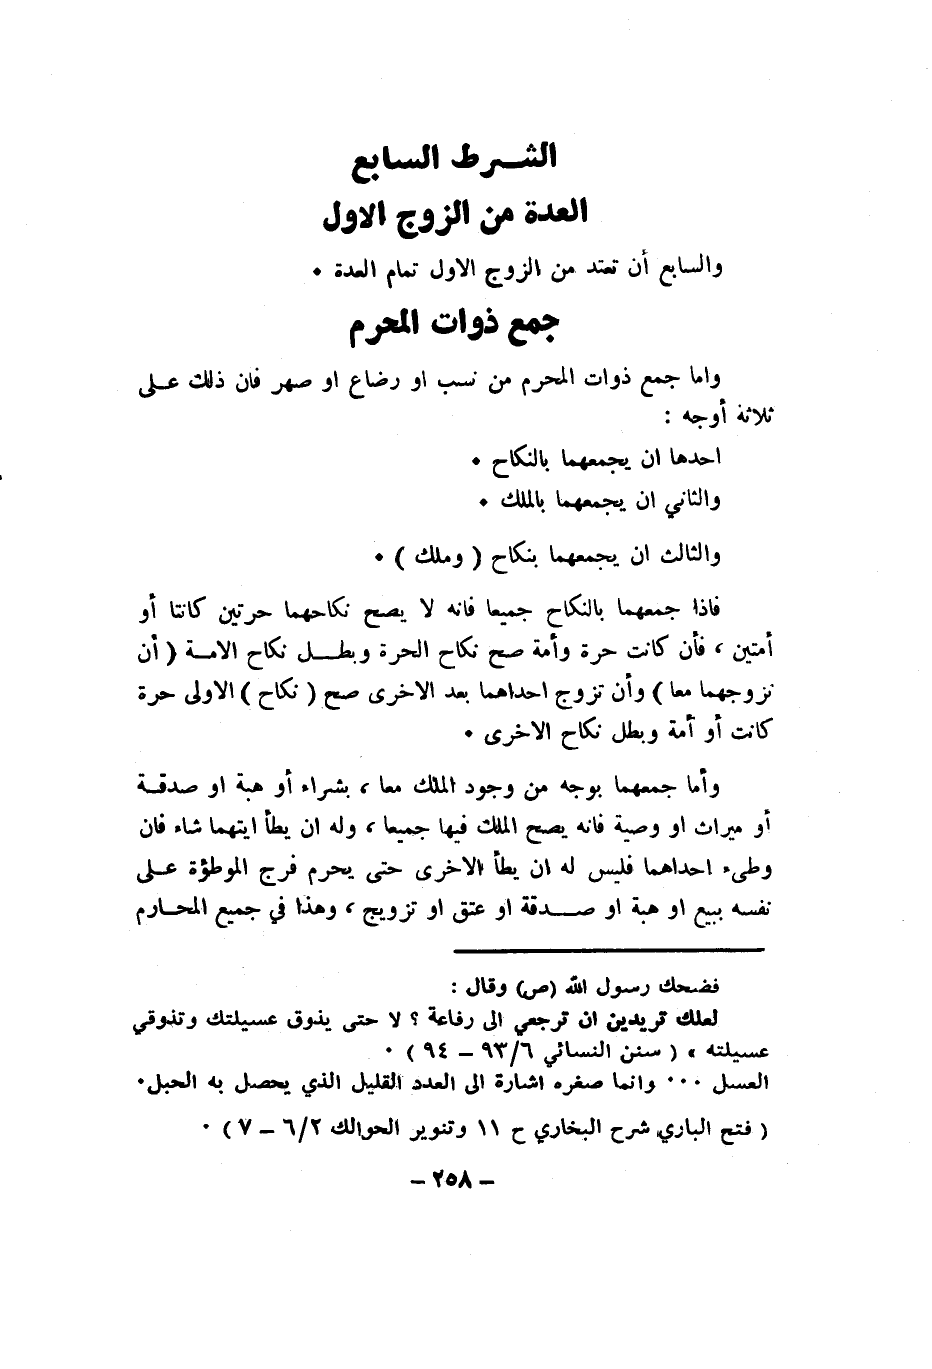 الشرط السابع
العدة من الزوج الاول
والسابع أن تعتد من الزوج الاول تمام العدة .
جمع ذوات المحرم
واما جمع ذوات المحرم من نسب او رضاع او صهر فان ذلك على
ثلاثة أوجه :
احدها ان يجمعهما بالنكاح .
والثاني ان يجمعهما بالملك .
والثالث ان يجمعهما بنكاح ( وملك ) .
فاذا جمعهما بالنكاح جميعا فانه لا يصح نكاحهما حرتين كانتا أو
أمتين ، فأن كانت حرة وأمة صح نكاح الحرة وبطل نكاح الامة ( أن
تزوجهما معا ) وأن تزوج احداهما بعد الاخرى صح ( نكاح ) الاولى حرة
كانت أو أمة وبطل نكاح الاخرى .
وأما جمعهما بوجه من وجود الملك معا ، بشراء أو هبة او صدقة
أو ميراث او وصية فانه يصح الملك فيها جميعا ، وله ان يطأ ايتهما شاء فان
وطيء احداهما فليس له ان يطأ الاخرى حتى يحرم فرج الموطؤة على
نفسه ببيع او هبة او صدقة او عتق او تزويج ، وهذا في جميع المحارم
فضحك رسول الله (ص) وقال :
لعلك تريدين ان ترجعي الى رفاعة ؟ لا حتى يذوق عسيلتك وتذوقي
عسيلته » ( سنن النسائي ٩٣/٦ – ٩٤ ) .
العسل ... وانما صغره اشارة الى العدد القليل الذي يحصل به الحبل.
( فتح الباري شرح البخاري ج ١١ وتنوير الحوالك ٦/٢ – ٧ ) .
– ٢٥٨ –